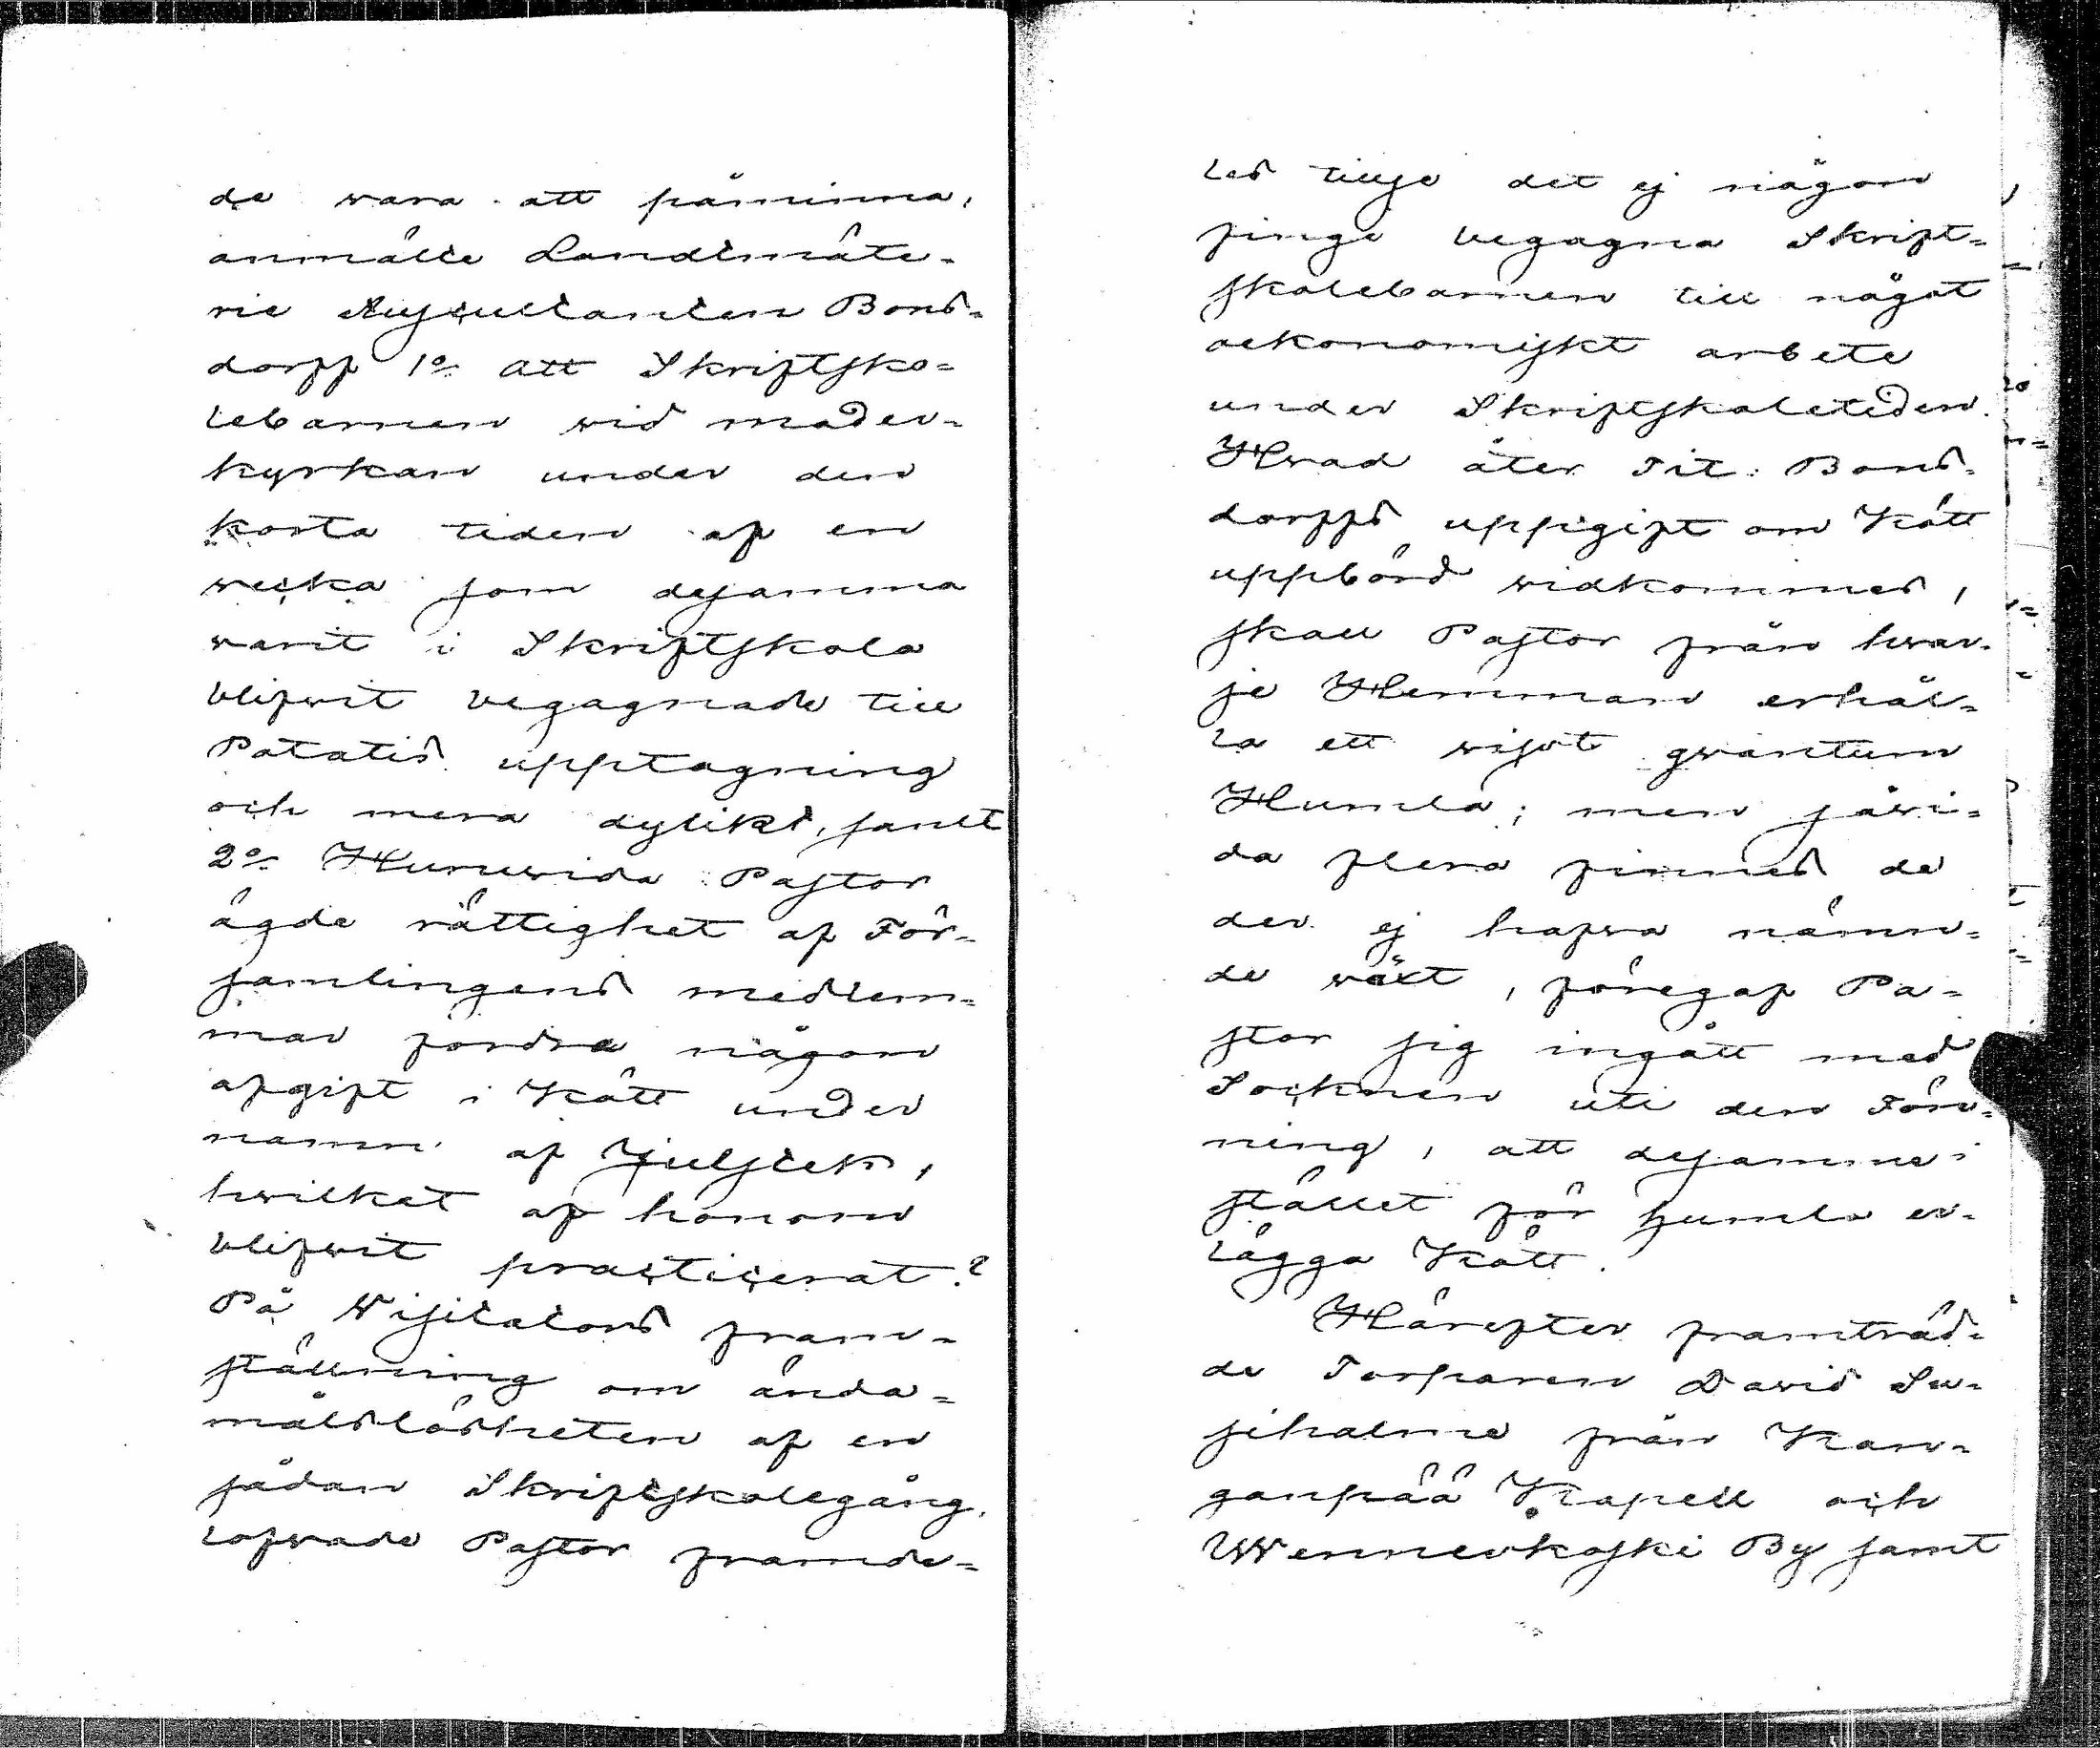 de wara att påminna,
anmälte Landtmäte-
rie Auscultanten Bons-
dorff 1o att Skriftsko-
lebarnen wid moder-
kyrkan under den
korta tiden af en
wecka som desamma
warit i Skriftskola
blifwit begagnade till
Potatis upptagning
och mera dylikt, samt
2o Huruwida Pastor
ägde rättighet af För-
samlingens medlem-
mar fordra någon
afgift i Kött under
namn af
hwilket af honom
blifwit practicerat?
På Wisitators fram-
ställning om ända-
målslösheten af en
sådan Skriftskolegång,
lofwade Pastor framde-
les tillse det ej någon
finge begagna Skrift-
skolebarnen till något
oekonomiskt arbete
under Skriftskoletiden.
Hwad åter Tit: Bons-
dorffs uppgift om Kött
uppbörd widkommer,
skall Pastor från hwar-
je Hemman erhål-
la ett wisst qwantum
Humla; men såwi-
da flera finnes de
der ej hafwa nämn-
de wäxt, föregaf Pa-
stor sig ingått med
Socknen uti den Före-
ning, att desamme i
stället för humla er-
lägga Kött.
Härefter framträd-
de Torparen David Su-
siholme från Kan-
ganpää Kapell och
Wennerkoski By samt